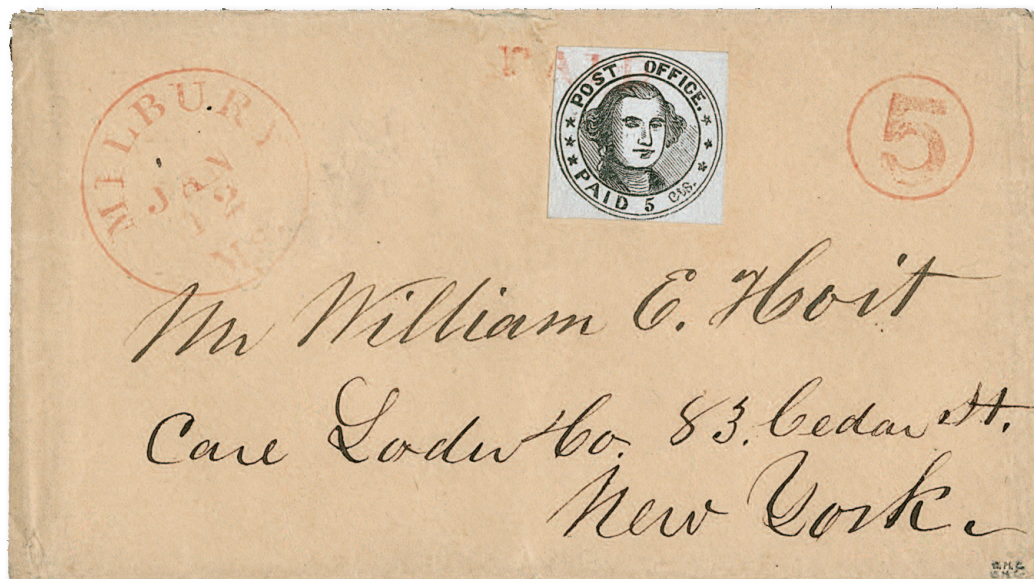 PAID
MILBURY
JAN
12
MS.
POST OFFICE.
PAID 5 cts.
5
Mr William E. Hoit
Care Loder & Co. 83. Cedar St.
New York.